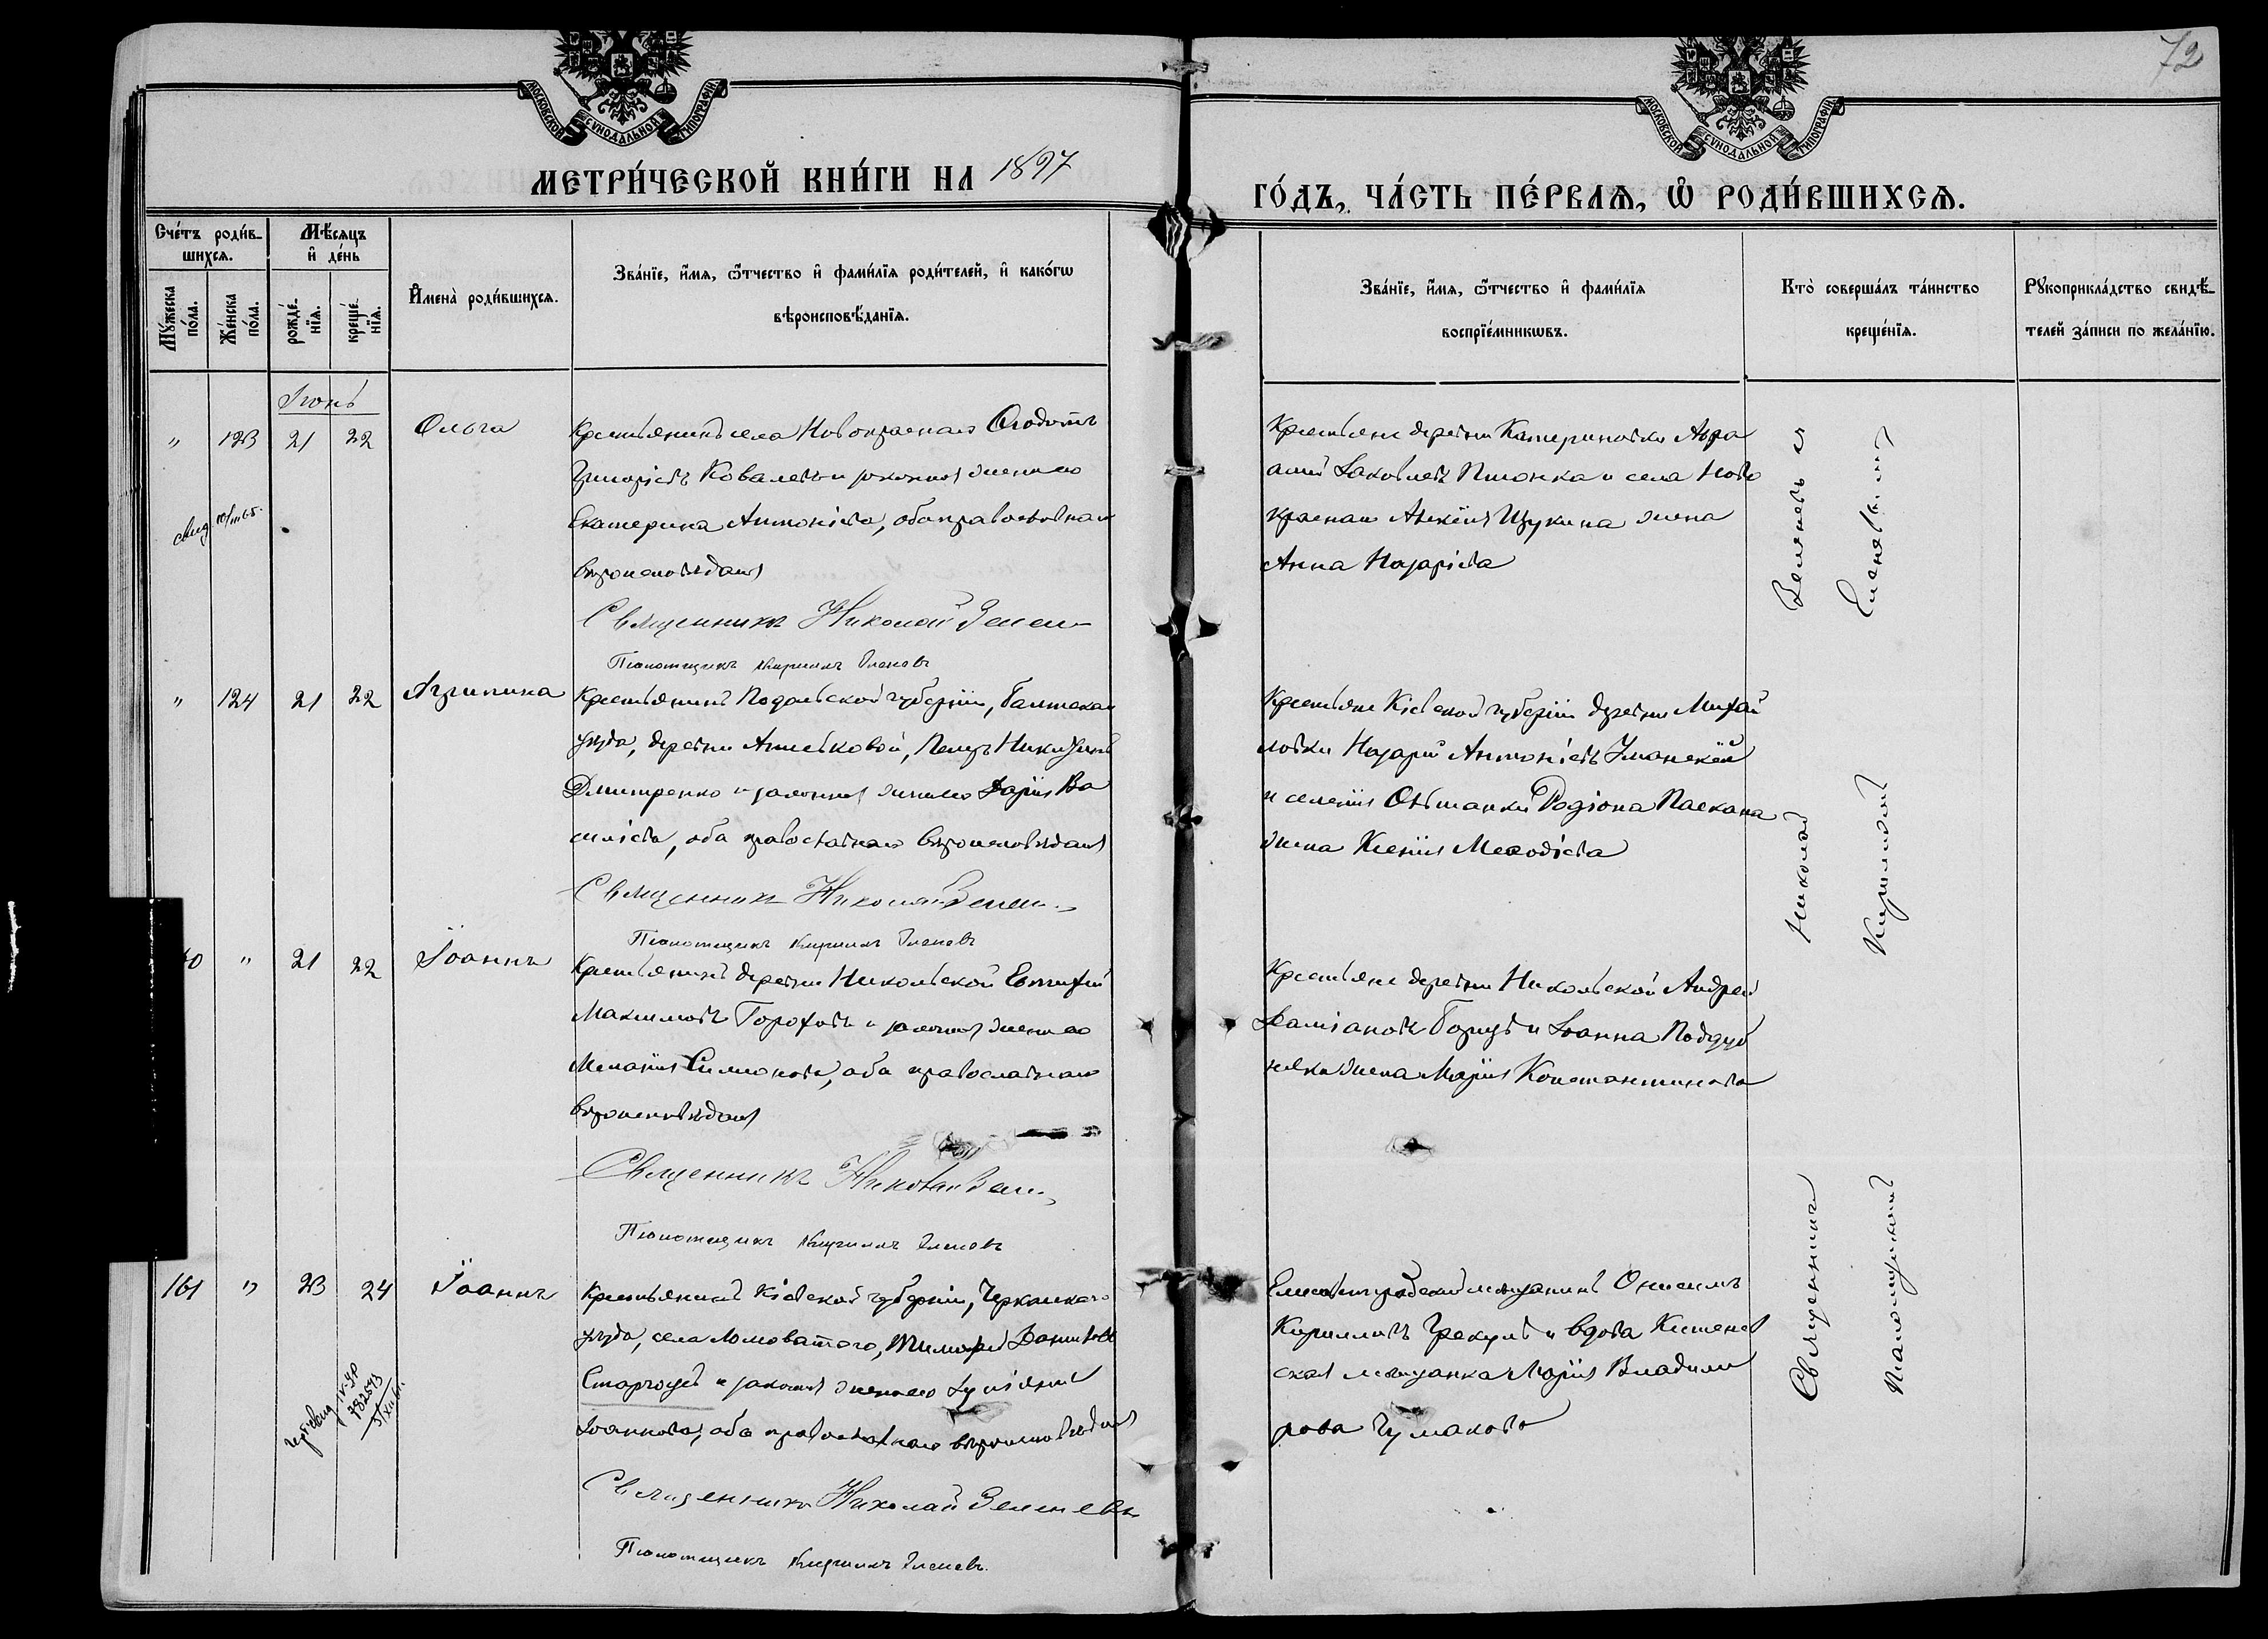 72
МОСКОВСКОЙ СѴНОДАЛЬНОЙ ТИПОГРАФІИ
МОСКОВСКОЙ СѴНОДАЛЬНОЙ ТИПОГРАФІИ
МЕТРИ́ЧЕСКОЙ КНИ́ГИ НА 1897
ГО́ДЪ, ЧА́СТЬ ПЕ́РВАѦ, Ѡ РОДИ́ВШИХСѦ.
Сче́тъ роди́в-
шихсѧ.
Мѣ́сѧцъ
и де́нь
Му́жеска
по́ла.
Же́нска
по́ла.
рожде́-
нїѧ.
креще́-
нїѧ.
Имена̀ роди́вшихсѧ.
Зва́нїе, и́мѧ, ѻ҆́тчество и фами́лїѧ роди́телей, и како́гѡ
вѣроисповѣ́данїѧ.
Зва́нїе, и́мѧ, ѻ҆́тчество и фами́лїѧ
воспрїе́мникѡвъ.
Кто̀ соверша́лъ та́инство
креще́нїѧ.
Рꙋкоприкла́дство свидѣ́-
телей за́писи по жела́нїю.
Іюнь
" 123 21 22 Ольга
Крестьянинъ села Новокраснаго Ѳеодотъ
Григоріевъ Ковалевъ и законная жена его
Екатерина Антоніева, оба православнаго
вѣроисповѣданія
Священникъ Николай Зелен
Псаломщикъ Кириллъ Еленевъ
Крестьяне деревни Катериновки Авра
амій Іаковлевъ Пшонка и села Ново
краснаго Алексія Щукина жена
Анна Назаріева
" 124 21 22 Агрипина
Крестьянинъ Подольской губерніи, Балтскаго
уѣзда, деревни Петръ
Дмитренко и законная жена его Дарія Ва
силіева, оба православнаго вѣроисповѣданія
Священникъ Николай Зелен
Псаломщикъ Кириллъ Еленевъ
Крестьяне Кіевской губерніи деревни Михай
ловки Назарій Антоніевъ Уманскій
и селенія Ольшанки Родіона Паскана
жена Ксенія Меѳодіева
" 21 22 Іоаннъ
Крестьянинъ деревни Никольской Евтихій
Максимовъ Гороховъ и законная жена его
Меланія Симеонова, оба православнаго
вѣроисповѣданія
Священникъ Николай Зелен
Псаломщикъ Кириллъ Еленевъ
Крестьяне деревни Никольской Андрей
Даміановъ и Іоанна Поддуб
няка жена Марія Константинова
161 " 23 24 Іоаннъ
Крестьянинъ Кіевской губерніи, Черкаскаго
уѣзда, села Ломоватого, Тимоѳей
и законная жена его
Іоаннова, оба православнаго вѣроисповѣданія
Священникъ Николай Зеленевъ
Псаломщикъ Кириллъ Еленевъ.
Елисаветградскій мѣщанинъ Онисимъ
Кирилловъ и вдова Кишенев
ская мѣщанка Марія Владими
рова Чумакова
Священникъ Николай Зеленевъ и
Псаломщикъ Кириллъ Еленевъ